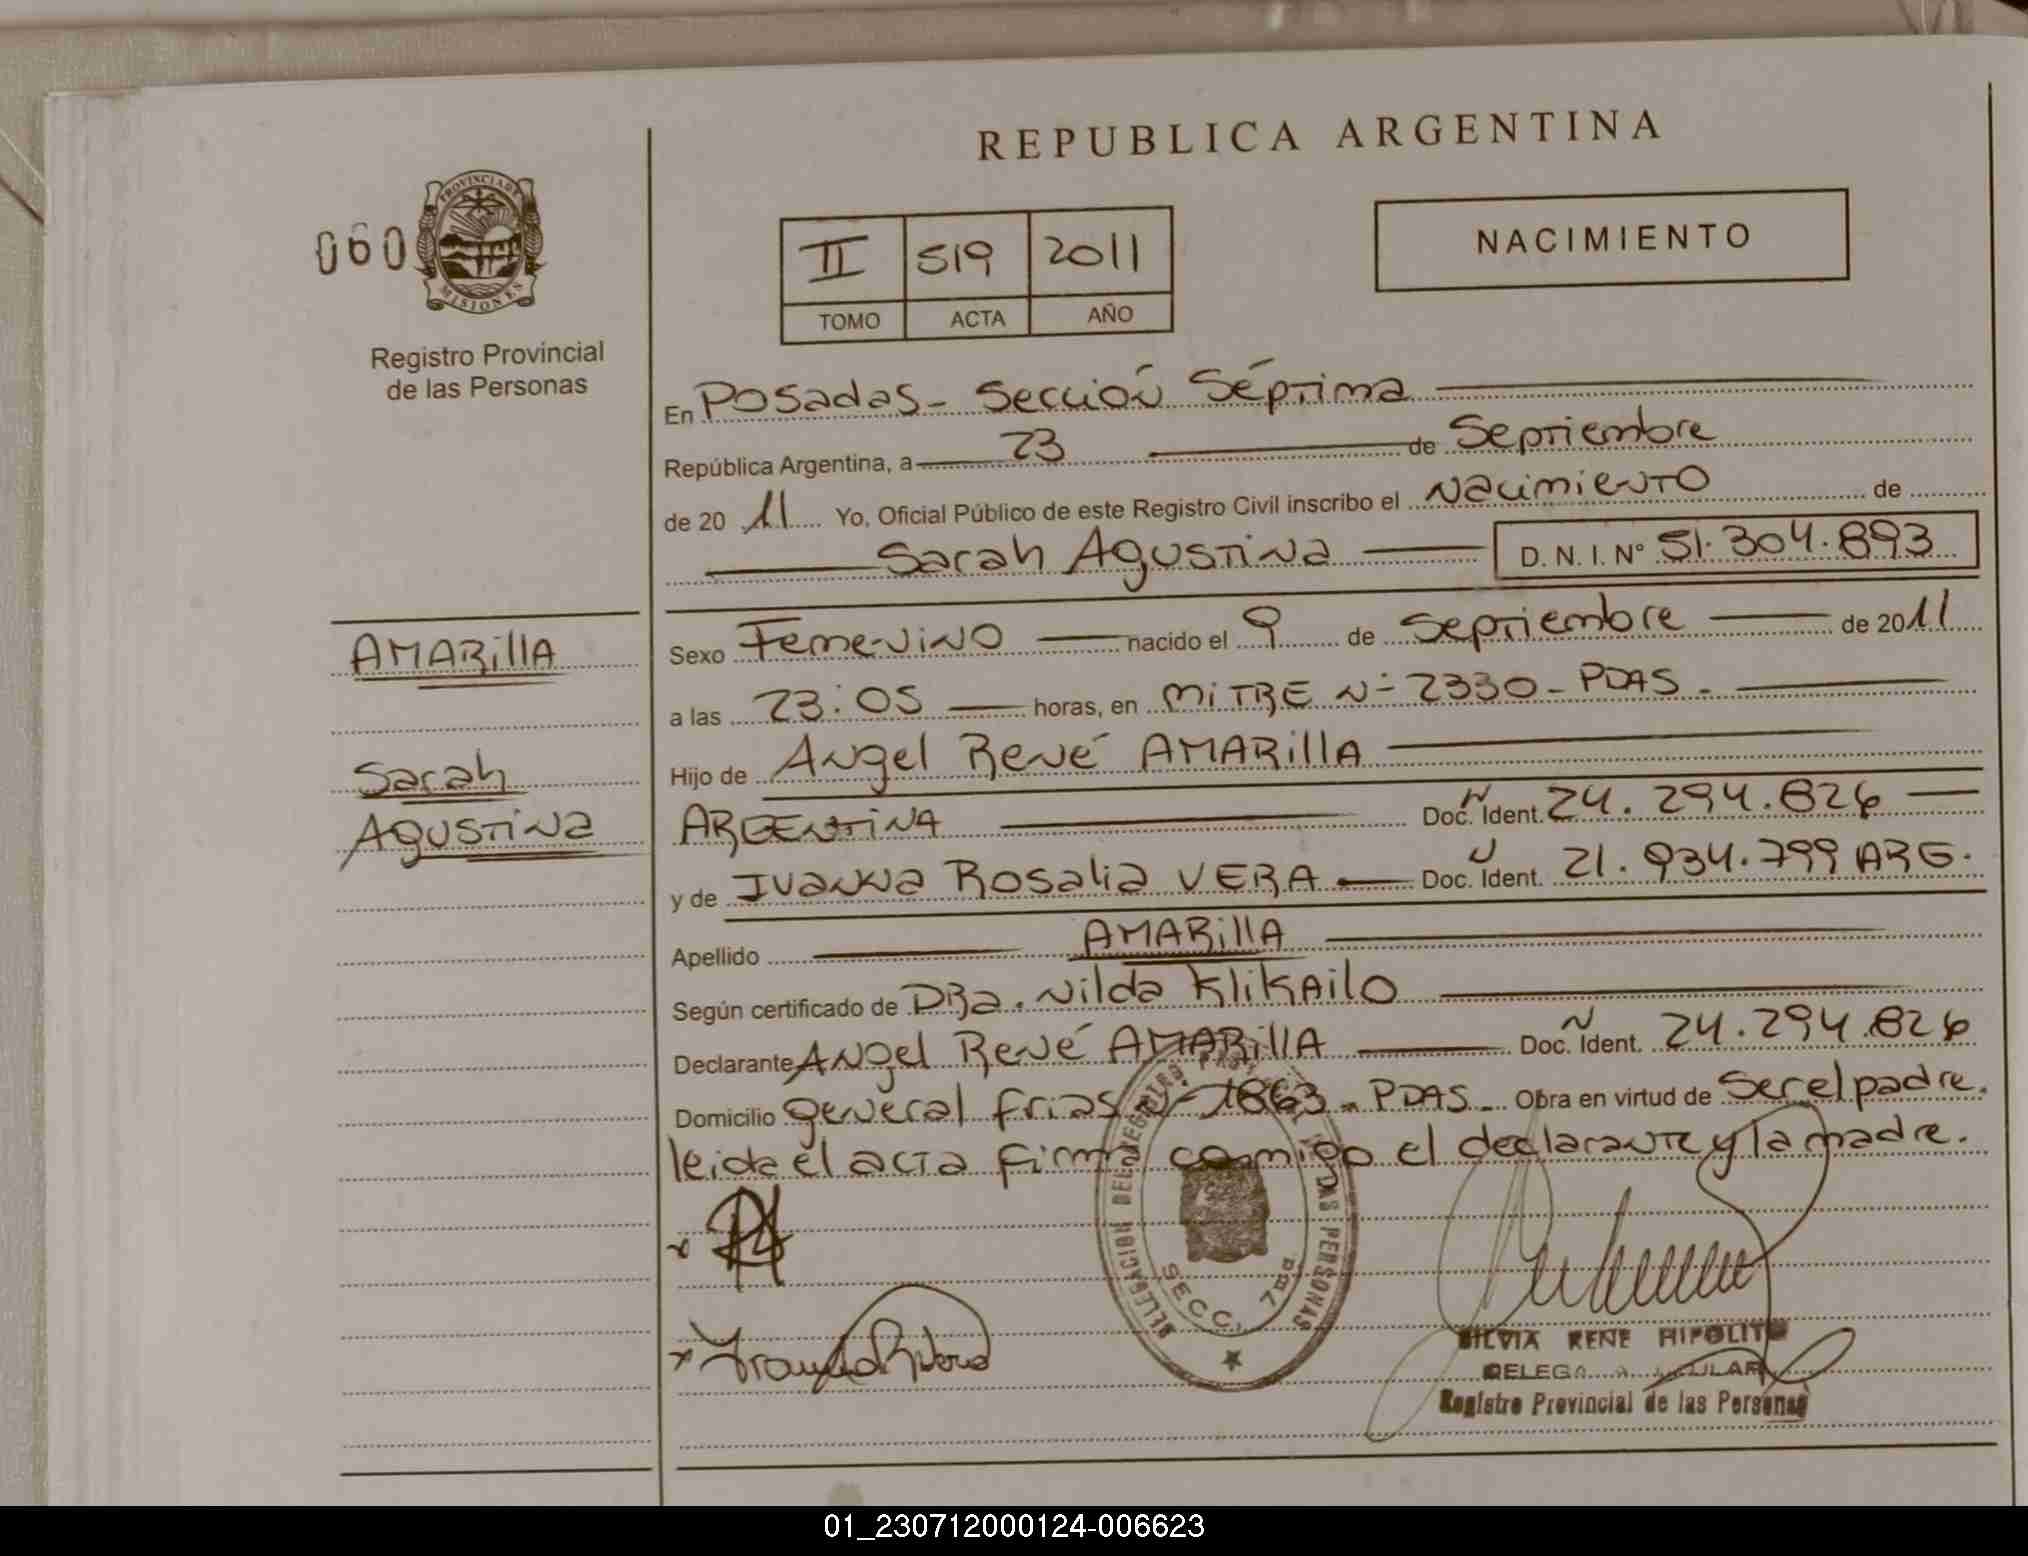 REPUBLICA ARGENTINA
060
PROVINCIA DE
MISIONES
Registro Provincial
de las Personas
II 519 2011
TOMO ACTA AÑO
NACIMIENTO
En Posadas - Sección Séptima
República Argentina, a 23 de Septiembre
de 20 11 Yo, Oficial Público de este Registro Civil inscribo el Nacimiento de
Sarah Agustina D. N. I. N° 51.304.893
AMARIllA
Sarah
Agustina
Sexo Femenino nacido el 9 de Septiembre de 2011
a las 23:05 horas, en MiTRE N° 2330 - PDAS -
Hijo de Angel René AMARIllA
ARGENTINA Doc. Ident. 24.294.826
y de Ivanna Rosalia VERA Doc. Ident. 21.934.799 ARG.
Apellido AMARIllA
Según certificado de DRa. Nilda KliKAilO
Declarante Angel René AMARIllA Doc. Ident. 24.294.826
Domicilio general frias N° 1863 - PDAS - Obra en virtud de Ser el padre.
leida el acta firma conmigo el declarante y la madre.
DELEGACION DEL REGISTRO PROVINCIAL DE LAS PERSONAS
SECC. 7ma
SILVIA RENE HIPOLITO
Registro Provincial de las Personas
01_230712000124-006623